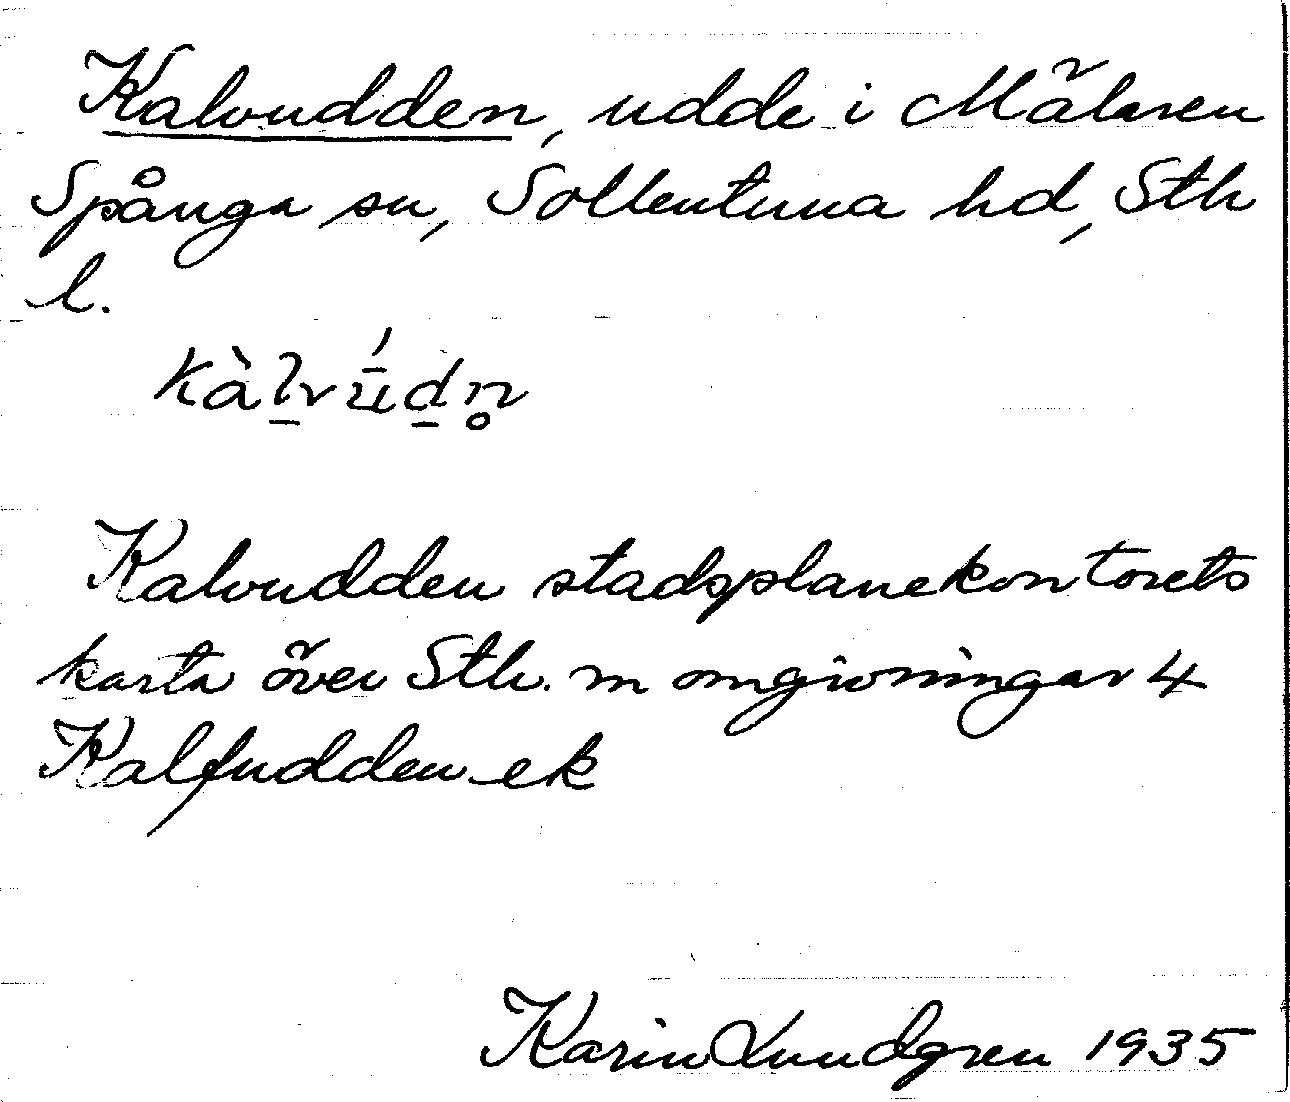 Kalvudden, udde i Mälaren
Spånga sn, Sollentuna hd, Sth
l.
kàl̠vū́d̠n̥
Kalvudden stadsplanekontorets
karta över Sth. m omgivningar 4
Kalfudden ek
Karin Lundgren 1935